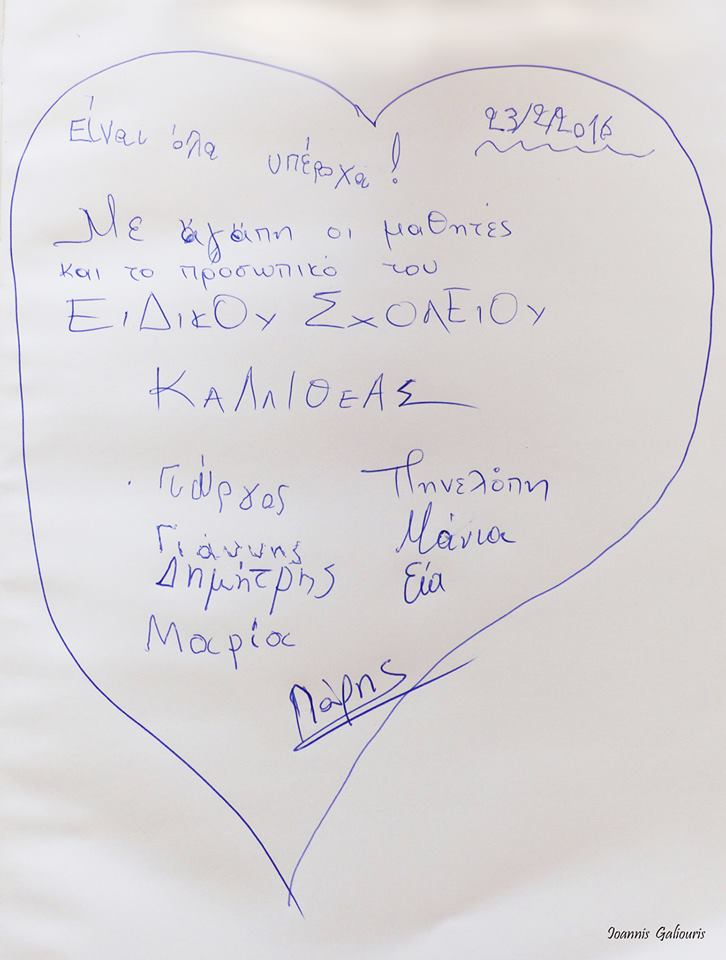 Είναι όλα υπέροχα!
23/2/2016
Με αγάπη οι μαθητές
και το προσωπικό του
ΕιΔικΟυ ΣχΟλΕιΟυ
ΚΑΛΛΙΘΕΑΣ
Γιώργος Πηνελόπη
Γιάννης Μάνια
Δημήτρης Εία
Μαρία
Πάρης
Ioannis Galiouris